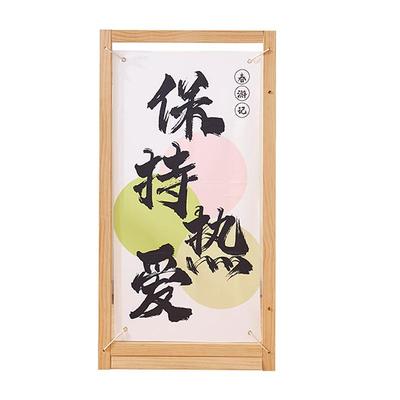 保持热爱
春游记